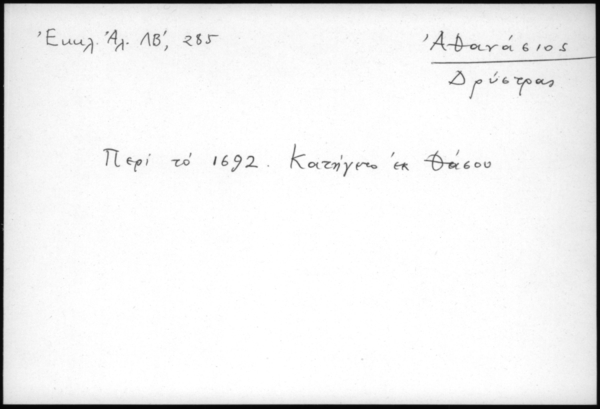 Ἐκκλ. Ἀλ. ΛΒ', 285
Ἀθανάσιος
Δρύστρας
Περί τό 1692. Κατήγετο ἐκ Θάσου